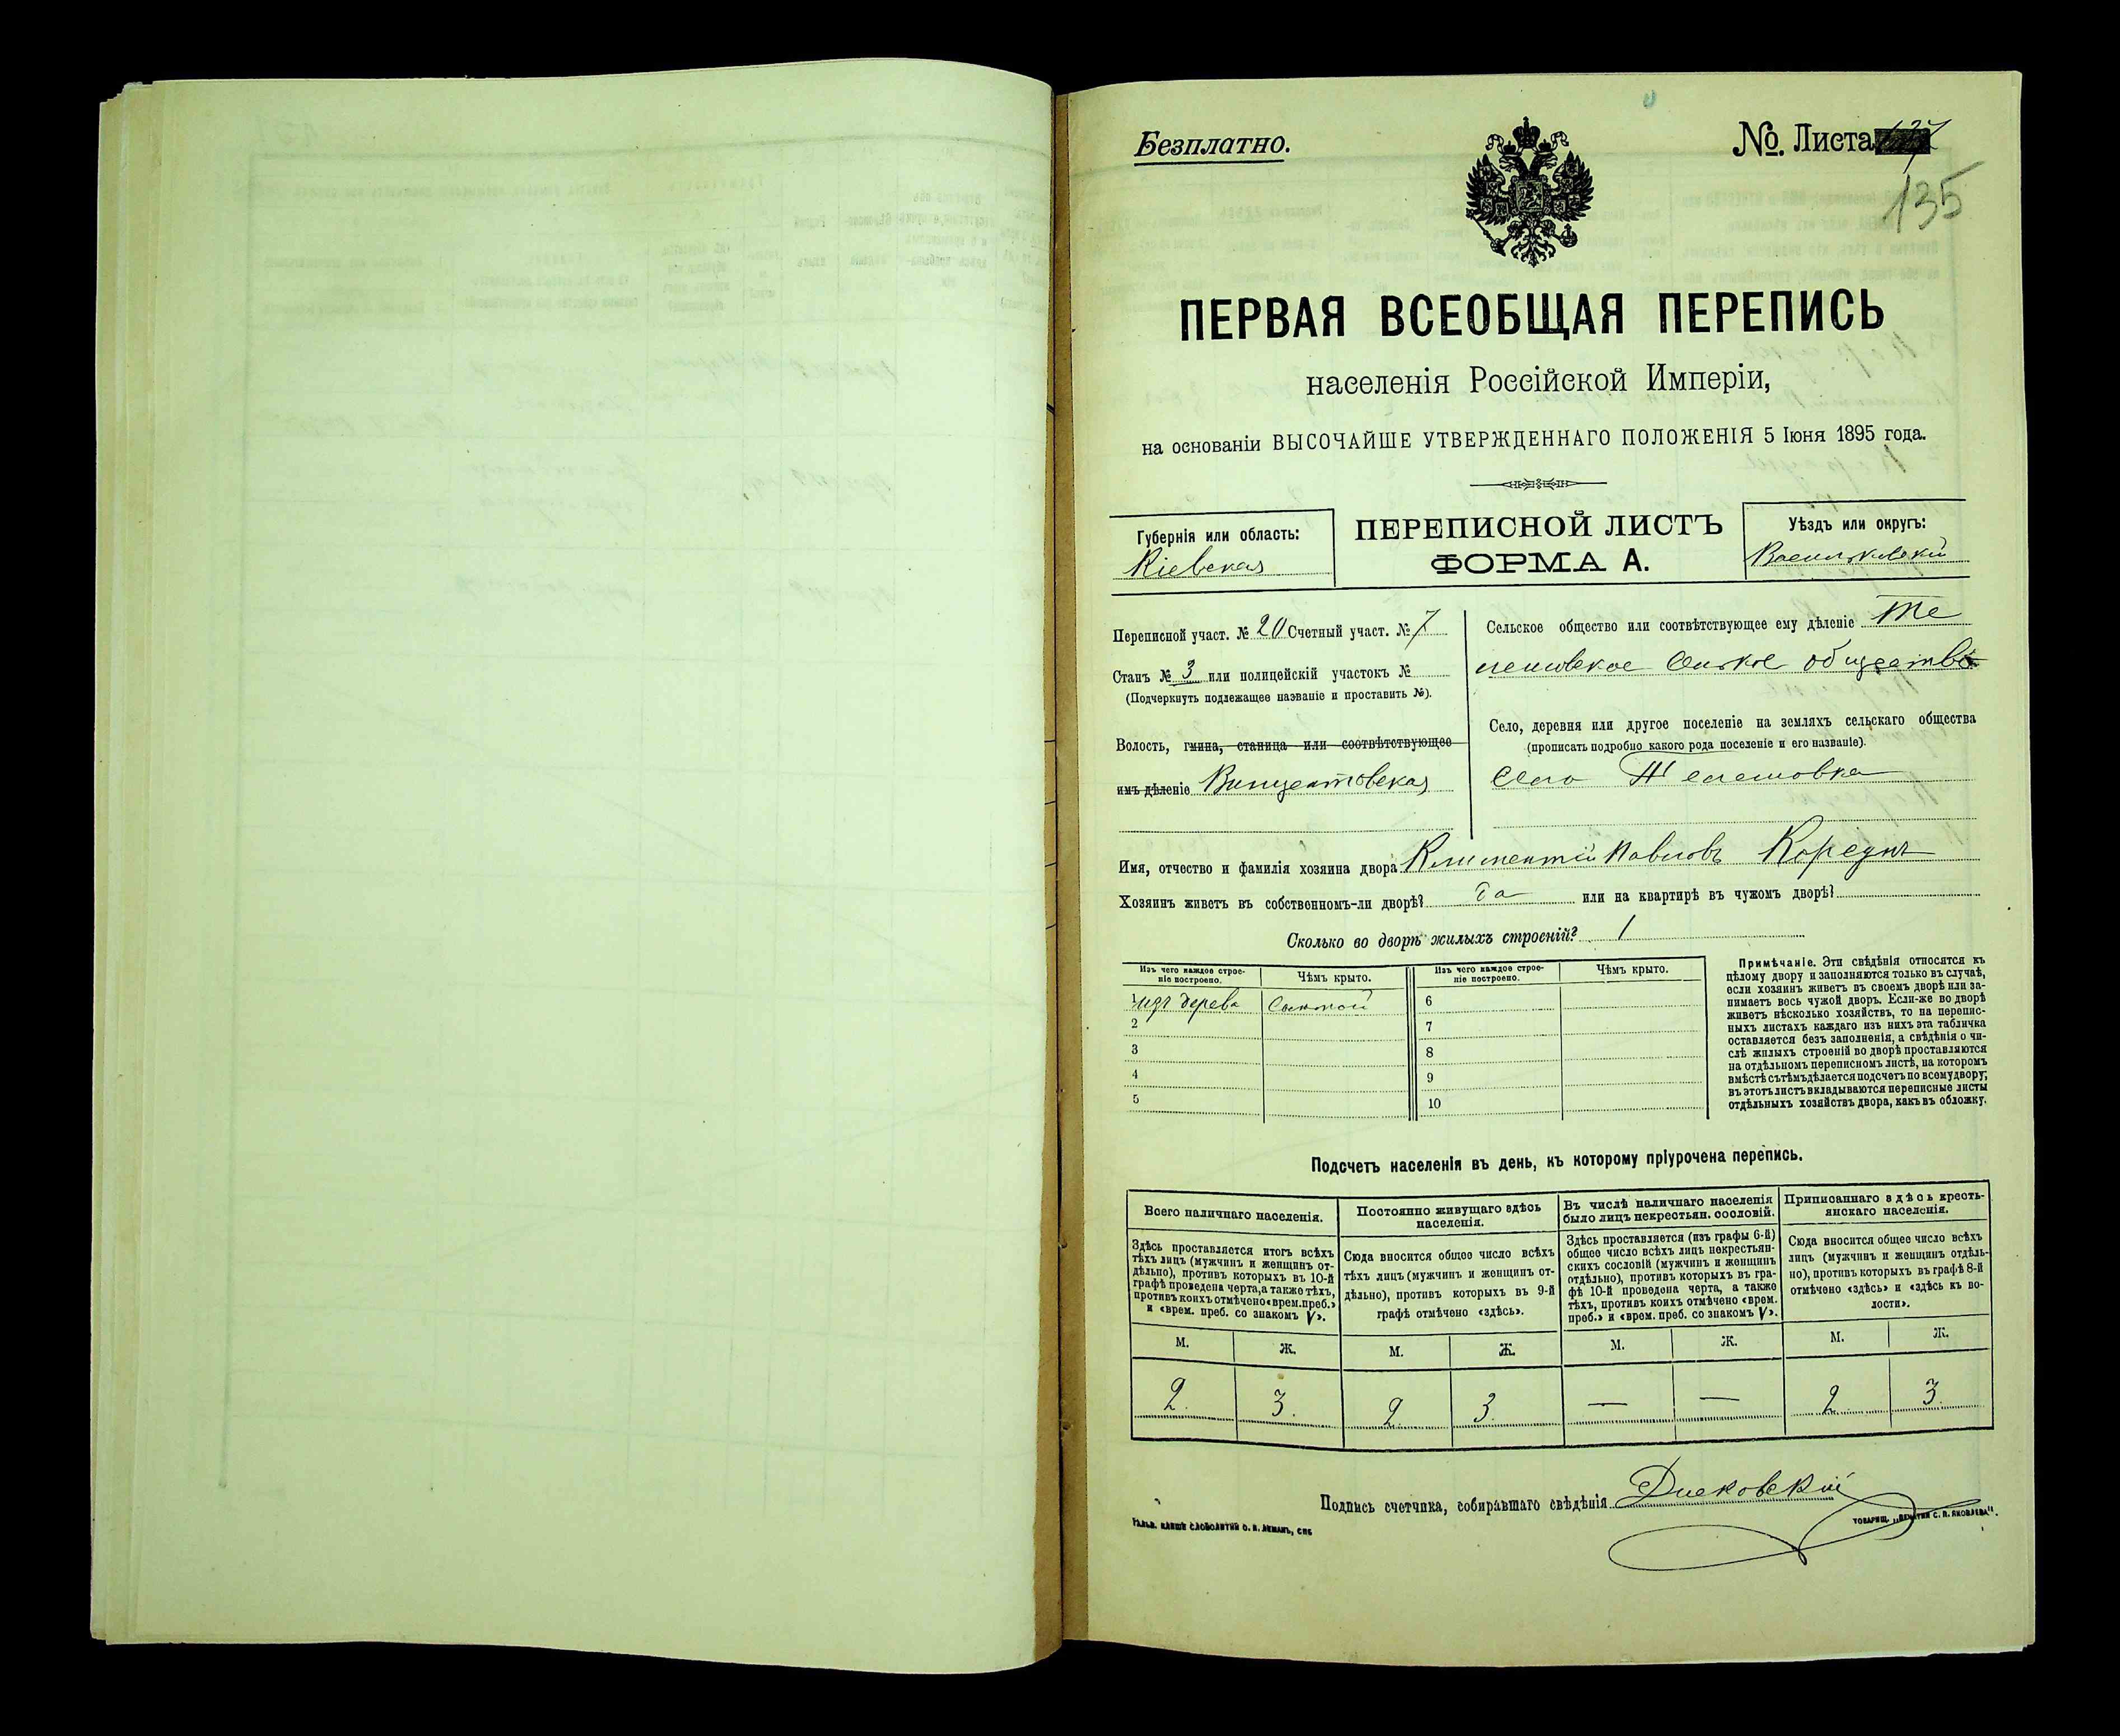 Безплатно.
№. Листа 137
135
ПЕРВАЯ ВСЕОБЩАЯ ПЕРЕПИСЬ
населенія Россійской Имперіи,
на основаніи ВЫСОЧАЙШЕ УТВЕРЖДЕННАГО ПОЛОЖЕНІЯ 5 Іюня 1895 года.
Губернія или область:
Кіевская
ПЕРЕПИСНОЙ ЛИСТЪ
ФОРМА А.
Уѣздъ или округъ:
Васильковскій
Переписной участ. № 20 Счетный участ. № 7
Станъ № 3 или полицейскій участокъ №
(Подчеркнуть подлежащее названіе и проставить №).
Волость, гмина, станица или соотвѣтствующее
имъ дѣленіе Винцентовская
Сельское общество или соотвѣтствующее ему дѣленіе
общество
Село, деревня или другое поселеніе на земляхъ сельскаго общества
(прописать подробно какого рода поселеніе и его названіе).
село
Имя, отчество и фамилія хозяина двора Климентій Павловъ
Хозяинъ живетъ въ собственномъ-ли дворѣ? да или на квартирѣ въ чужомъ дворѣ?
Сколько во дворѣ жилыхъ строеній? 1
Изъ чего каждое строе-
ніе построено.
Чѣмъ крыто.
Изъ чего каждое строе-
ніе построено.
Чѣмъ крыто.
1 изъ дерева
6
2
7
3
8
4
9
5
10
Примѣчаніе. Эти свѣдѣнія относятся къ
цѣлому двору и заполняются только въ случаѣ,
если хозяинъ живетъ въ своемъ дворѣ или за-
нимаетъ весь чужой дворъ. Если-же во дворѣ
живетъ нѣсколько хозяйствъ, то на перепис-
ныхъ листахъ каждаго изъ нихъ эта табличка
оставляется безъ заполненія, а свѣдѣнія о чи-
слѣ жилыхъ строеній во дворѣ проставляются
на отдѣльномъ переписномъ листѣ, на которомъ
вмѣстѣ съ тѣмъ дѣлается подсчетъ по всему двору;
въ этотъ листъ вкладываются переписные листы
отдѣльныхъ хозяйствъ двора, какъ въ обложку.
Подсчетъ населенія въ день, къ которому пріурочена перепись.
Всего наличнаго населенія.
Здѣсь проставляется итогъ всѣхъ
тѣхъ лицъ (мужчинъ и женщинъ от-
дѣльно), противъ которыхъ въ 10-й
графѣ проведена черта, а также тѣхъ,
противъ коихъ отмѣчено «врем. преб.»
и «врем. преб. со знакомъ V».
Постоянно живущаго здѣсь
населенія.
Сюда вносится общее число всѣхъ
тѣхъ лицъ (мужчинъ и женщинъ от-
дѣльно), противъ которыхъ въ 9-й
графѣ отмѣчено «здѣсь».
Въ числѣ наличнаго населенія
было лицъ некрестьян. сословій.
Здѣсь проставляется (изъ графы 6-й)
общее число всѣхъ лицъ некрестьян-
скихъ сословій (мужчинъ и женщинъ
отдѣльно), противъ которыхъ въ гра-
фѣ 10-й проведена черта, а также
тѣхъ, противъ коихъ отмѣчено «врем.
преб.» и «врем. преб. со знакомъ V».
Приписаннаго здѣсь кресть-
янскаго населенія.
Сюда вносится общее число всѣхъ
лицъ (мужчинъ и женщинъ отдѣль-
но), противъ которыхъ въ графѣ 8-й
отмѣчено «здѣсь» и «здѣсь къ во-
лости».
М. Ж. М. Ж. М. Ж. М. Ж.
2. 3. 2 3. — — 2 3.
Подпись счетчика, собиравшаго свѣдѣнія